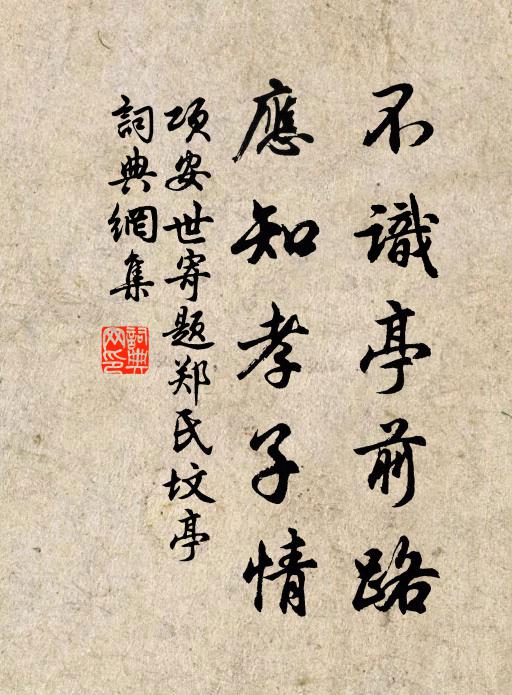 不識亭前路
應知孝子情
項安世寄题郑氏坟亭
詞典網集
詞典網印